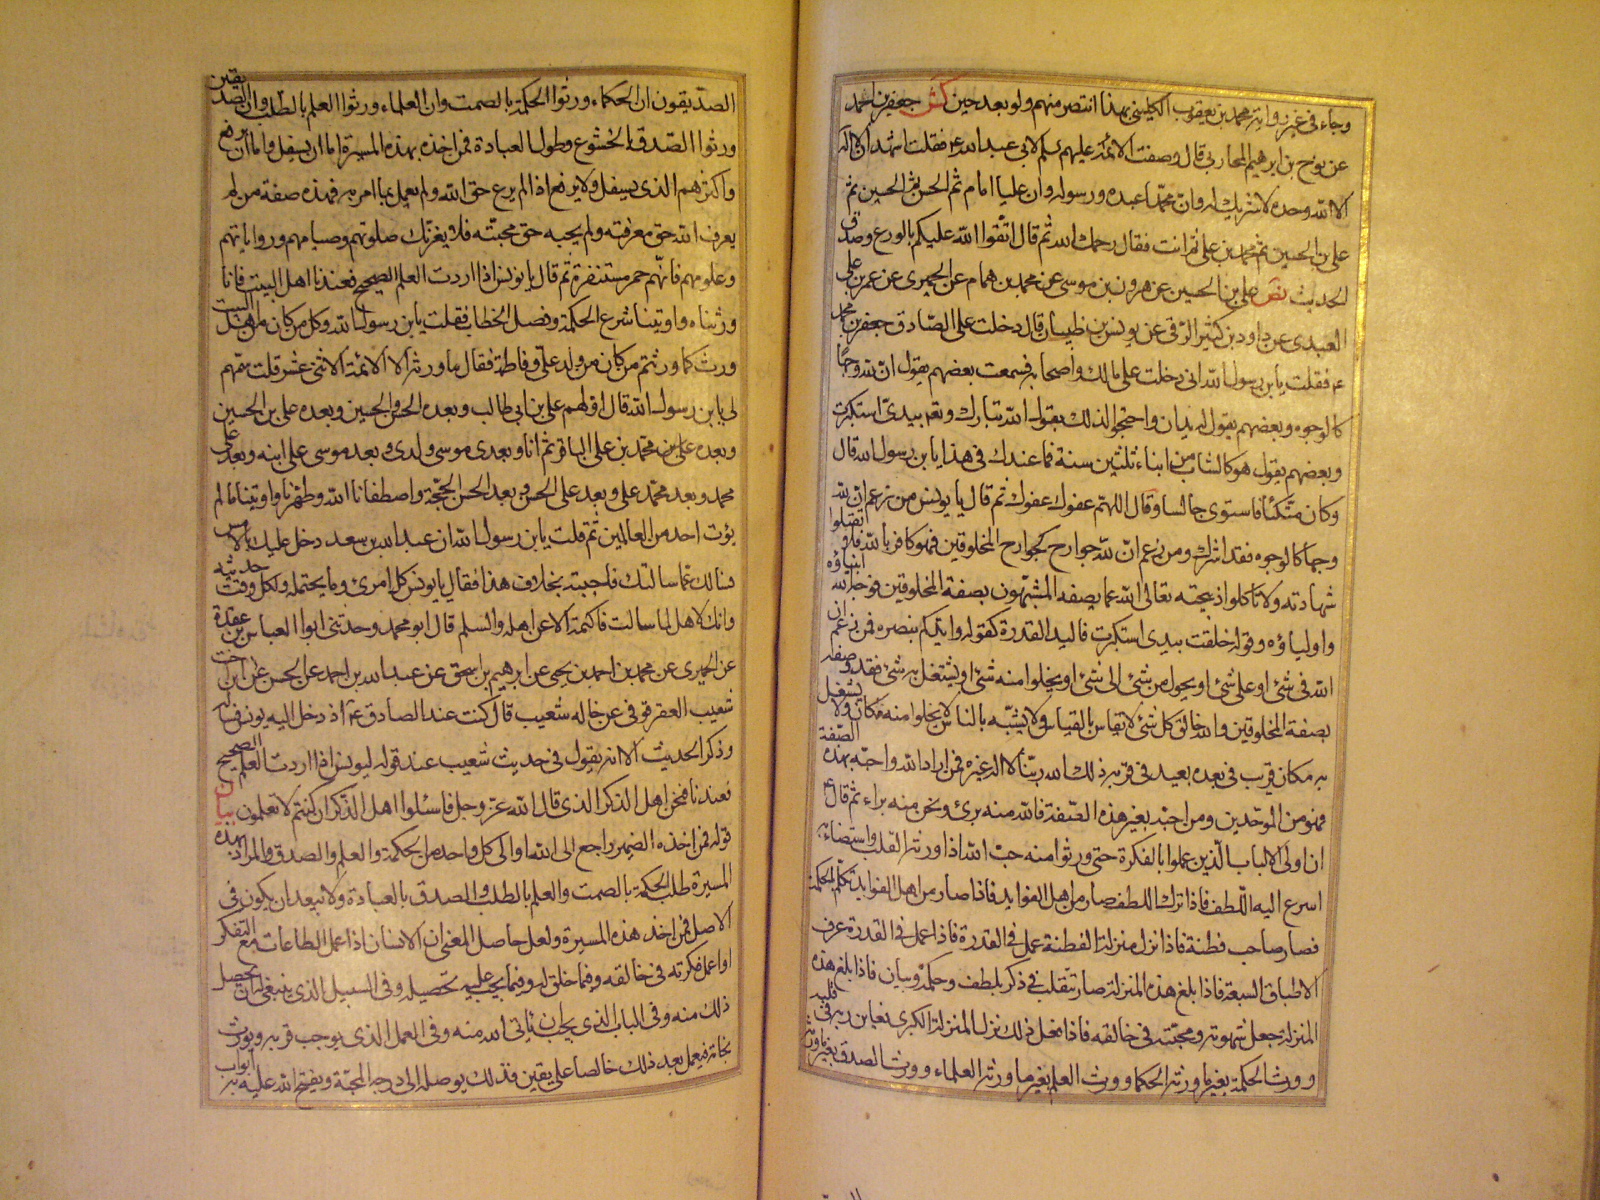 وجاء في غير رواية محمد بن يعقوب الكليني بهذا انتصر منهم ولو بعد حين كش جعفر بن احمد
عن نوح بن ابرهيم المحاربي قال وصفت الائمة عليهم السلم لابي عبد الله ع فقلت اشهد ان لا اله
الا الله وحده لا شريك له وان محمدا عبده ورسوله وان عليا امام ثم الحسن ثم الحسين ثم
علي بن الحسين ثم محمد بن علي ثم انت فقال رحمك الله ثم قال اتقوا الله عليكم بالورع وصدق
الحديث نص علي بن الحسين عن هرون بن موسى عن محمد بن همام عن الحميري عن عمر بن علي
العبدي عن داود بن كثير الرقي عن يونس بن ظبيان قال دخلت على الصادق جعفر بن محمد
ع فقلت يا بن رسول الله اني دخلت على مالك واصحابه فسمعت بعضهم يقول ان لله وجها
كالوجوه وبعضهم يقول له يدان واحتجوا لذلك بقول الله تبارك وتعم بيدي استكبرت
وبعضهم يقول هو كالشاب من ابناء ثلثين سنة فما عندك في هذا يا بن رسول الله قال
وكان متكئا فاستوى جالسا وقال اللهم عفوك عفوك ثم قال يا يونس من زعم ان لله
وجها كالوجوه فقد اشرك ومن زعم ان لله جوارح كجوارح المخلوقين فهو كافر بالله فلا تقبلوا
شهادته ولا تاكلوا ذبيحته تعالى الله عما يصفه المشبهون بصفة المخلوقين فوجه الله انبياؤه
واولياؤه وقوله خلقت بيدي استكبرت فاليد القدرة كقوله وايدكم بنصره فمن زعم ان
الله في شئ او على شئ او يحول من شئ الى شئ او يخلوا منه شئ او يشتغل به شئ فقد وصفه
بصفة المخلوقين والله خالق كل شئ لا يقاس بالقياس ولا يشبه بالناس لا يخلوا منه مكان ولا يشتغل
به مكان قريب في بعده بعيد في قربه ذلك الله ربنا لا اله غيره فمن اراد الله واحبه بهذه الصفة
فهو من الموحدين ومن احبه بغير هذه الصفة فالله منه برئ ونحن منه براء ثم قال ع
ان اولي الالباب الذين عملوا بالفكرة حتى ورثوا منه حب الله اذا ورثه القلب واستضاء به
اسرع اليه اللطف فاذا نزل اللطف صار من اهل الفوايد فاذا صار من اهل الفوايد تكلم بالحكمة
فصار صاحب فطنة فاذا نزل منزلة الفطنة عمل في القدرة فاذا عمل في القدرة عرف
الاطباق السبعة فاذا بلغ هذه المنزلة صار يتقلب في ذكر بلطف وحكمة وبيان فاذا بلغ هذه
المنزلة جعل شهوته ومحبته في خالقه فاذا فعل ذلك نزل المنزلة الكبرى فعاين ربه في قلبه
وورث الحكمة بغير ما ورثه الحكما وورث العلم بغير ما ورثه العلماء وورث الصدق بغير ما ورثه
الصديقون ان الحكماء ورثوا الحكمة بالصمت وان العلماء ورثوا العلم بالطلب وان الصديقين
ورثوا الصدق بالخشوع وطول العبادة فمن اخذه بهذه المسيرة اما ان يسفل واما ان يرفع
واكثرهم الذي يسفل ولا يرفع اذا لم يرع حق الله ولم يعمل بما امر به فهذه صفة من لم
يعرف الله حق معرفته ولم يحبه حق محبته فلا يغرنك صلوتهم وصيامهم ورواياتهم
وعلومهم فانهم حمر مستنفرة ثم قال يا يونس اذا اردت العلم الصحيح فعندنا اهل البيت فانا
ورثناه واوتينا شرع الحكمة وفصل الخطاب فقلت يا بن رسول الله وكل من كان من اهل البيت
ورث كما ورثتم من كان من ولد علي وفاطمة فقال ما ورثه الا الائمة الاثنى عشر قلت سمهم
لي يا بن رسول الله قال اولهم علي بن ابي طالب وبعده الحسن والحسين وبعده علي بن الحسين
وبعده محمد بن علي الباقر ثم انا وبعدي موسى ولدي وبعد موسى علي ابنه وبعد علي
محمد وبعد محمد علي وبعد علي الحسن وبعد الحسن الحجة اصطفانا الله وطهرنا واوتينا ما لم
يؤت احد من العالمين ثم قلت يا بن رسول الله ان عبد الله بن سعد دخل عليك بالامس
فسالك عما سالتك فاجبته بخلاف هذا فقال يا يونس كل امرئ وما يحتمله ولكل وقت حديثه
وانك لاهل لما سالت فاكتمه الا عن اهله والسلم قال ابو محمد وحدثني ابو العباس بن عقدة
عن الحميري عن محمد بن احمد بن يحيى عن ابرهيم بن اسحق عن عبد الله بن احمد عن الحسن عن ابن اخت
شعيب العقرقوفي عن خاله شعيب قال كنت عند الصادق ع اذ دخل اليه يونس فساله
وذكر الحديث الا انه يقول في حديث شعيب عند قوله ليونس اذا اردت العلم الصحيح
فعندنا فنحن اهل الذكر الذي قال الله عز وجل فاسئلوا اهل الذكر ان كنتم لا تعلمون بيان
قوله فمن اخذه الضمير راجع الى الله او الى كل واحد من الحكمة والعلم والصدق والمراد بهذه
المسيرة طلب الحكمة بالصمت والعلم بالطلب والصدق بالعبادة ولا يبعد ان يكون في
الاصل فمن اخذ هذه المسيرة ولعل حاصل المعنى ان الانسان اذا عمل الطاعات مع التفكر
او اعمل فكرته في خالقه وفيما خلق له وفيما يجب عليه تحصيله وفي السبيل الذي ينبغي ان يحصل
ذلك منه وفي الباب الذي يجب ان ياتي الله منه وفي العمل الذي يوجب قربه ويورث
نجاته فيعمل بعد ذلك خالصا على يقين فذلك يوصله الى درجة المحبة ويفتح الله عليه ابواب